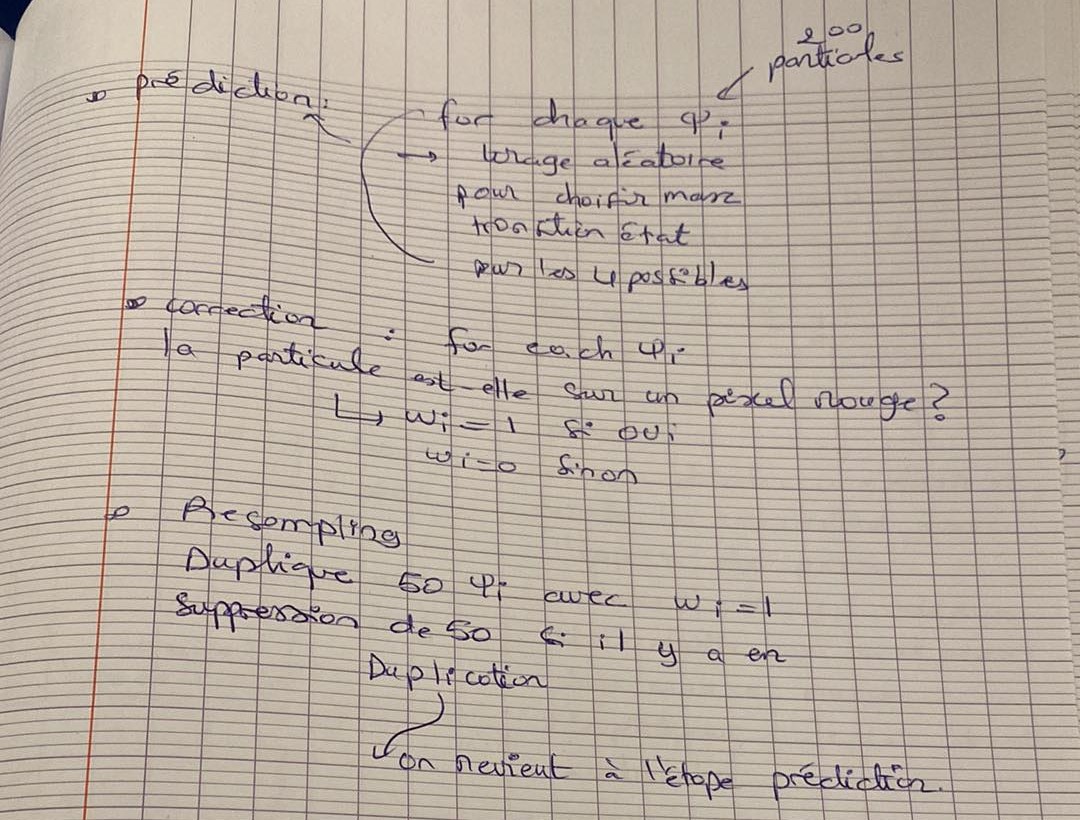 200
particules
prédiction:
for chaque φi
→ tirage aléatoire
pour choisir
transition État
pour les 4 possibles
correction : for each φi
la particule est-elle sur un pixel rouge?
↳ wi = 1 si oui
wi=0 sinon
Resampling
Duplique 50 φi avec wi=1
Suppression de 50 si il y a en
Duplication
on revient à l'étape prédiction.